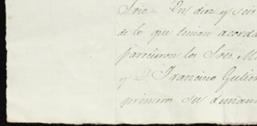 Soto. En diez y seis
de lo que tenian acorda
parecieron los Sres. M
y D. Francisco Gutier
primero su dictamen